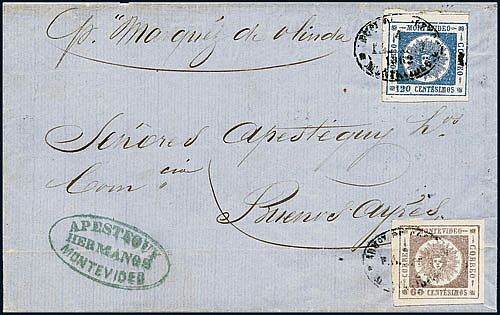 pr "Marqués de olinda
MONTEVIDEO
CORREO
CORREO
120 CENTÉSIMOS
Señores Apesteguy hos
Com cia
Buenos Ayres
APESTEGUY
HERMANOS
MONTEVIDEO
MONTEVIDEO
CORREO
CORREO
60 CENTÉSIMOS